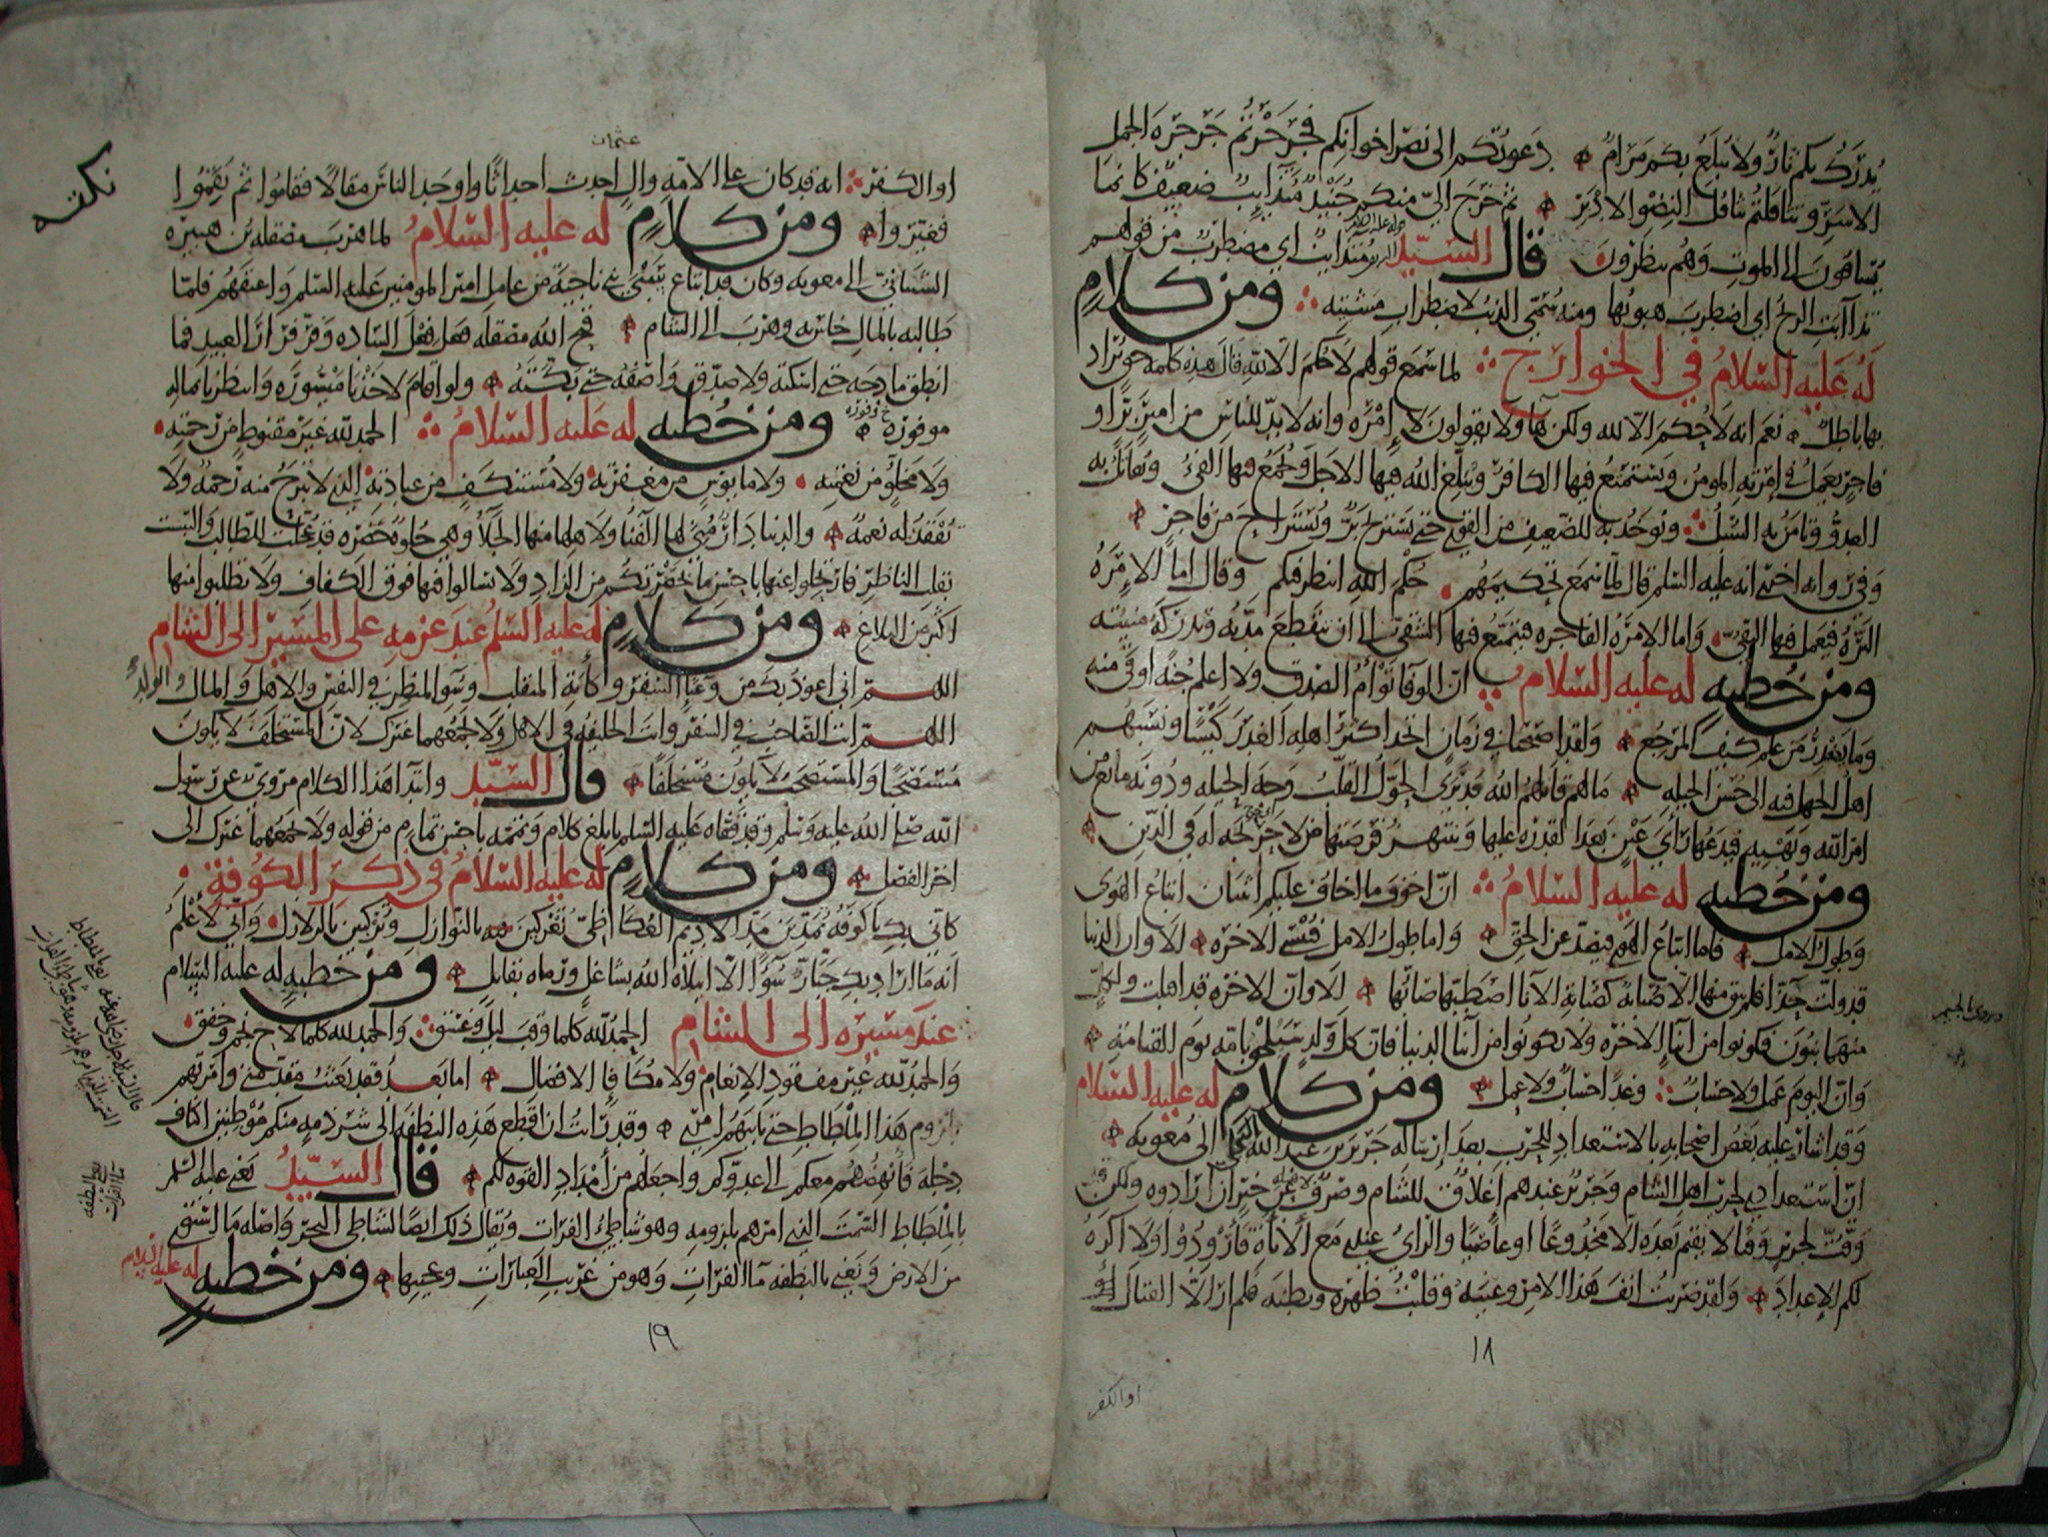 يُدرَكُ بكم ثارٌ ولا يُبلَغُ بكم مَرَامٌ دَعوتُكم الى نَصر اخوانكم فجَرجَرتُم جَرجَرَةَ الجمل
الاسَرِّ وتثاقلتم تثاقل النِضو الادبَر ثم خرج اليّ منكم جُنَيدٌ مُتذايبٌ ضعيف كانما
يُساقون الى الموت وهم ينظرون قال السيّد متذايب اي مضطرب من قولهم
تذاابت الريح اي اضطرب هبوبها ومنه سُمّي الذيب لاضطراب مشيته ومن كلامٍ
له عليه السلام في الخوارج لما سمع قولهم لا حُكم الا لله قال هذه كلمة حق يُراد
بها باطل نعم انه لا حُكم الا لله ولكن هاولا يقولون لا إمره وانه لا بدّ للناس من امير بَرّ او
فاجر يعمل في امرته المومن ويستمتع فيها الكافر ويُبلّغ الله فيها الاجل ويُجمع فيها الفئ ويُقاتَل به
العدوّ وتامن به السبل ويوخذ به للضعيف من القوي حتى يستريح برٌّ ويُستراح من فاجر
وفي روايه اخرى انه عليه السلم قال لما سمع تحكيمهم حُكم الله انتظر فيكم وقال اما الامره
البَرّه فيعمل فيها التقيّ واما الامره الفاجره فيتمتع فيها الشقي الى ان تنقطع مدّته وتدركه منيّته
ومن خطبه له عليه السلام انّ الوفا توأمُ الصدق ولا اعلم جُنةً اوقى منه
وما يغدر من علم كيف المرجع ولقد اصبحنا في زمان اتخذ اكثر اهله الغدر كيسًا ونسبهم
اهل الجهل فيه الى حسن الحيله ما لهم قاتلهم الله قد يرى الحُوّل القُلّب وجه الحيله ودونه مانع من
امر الله ونهيه فيدعها راي عين بعد القدره عليها وينتهز فرصتها من لا حريجه له في الدين
ومن خطبه له عليه السلام انّ اخوف ما اخاف عليكم اثنان اتباع الهوى
وطول الامل فاما اتباع الهوى فيصدّ عن الحق واما طول الامل فيُنسي الاخره الا وان الدنيا
قد ولّت حذّا فلم يبق منها الا صُبابة كصُبابة الانا اصطبّها صابّها الا وانّ الاخره قد اقبلت ولكلٍّ
منهما بنون فكونوا من ابنا الاخره ولا تكونوا من ابنا الدنيا فان كل ولد سيُلحق بامّه يوم القيامه
وانّ اليوم عمل ولا حساب وغدًا حساب ولا عمل ومن كلامٍ له عليه السلام
وقد اشار عليه بعض اصحابه بالاستعداد للحرب بعد ارساله جرير بن عبد الله البجلي الى معويه
انّ استعدادي لحرب اهل الشام وجرير عندهم إغلاق للشام وصرف لاهله عن خير ان ارادوه ولكن قد
وقّتّ لجرير وقتًا لا يقيم بعده الا مخدوعًا او عاصيًا والراي عندي مع الاناة فاَروِدُوا ولا اكره
لكم الاعداد ولقد ضربت انف هذا الامر وعينه وقلبت ظهره وبطنه فلم ار الا القتال
١٨
او الكفر
عثمان
او الكفر انه قد كان على الامّه والٍ احدث احداثًا واوجد الناس مقالًا فقالوا ثم نقموا
فغيّروا ومن كلامٍ له عليه السلام لما هرب مصقله بن هبيره
الشيباني الى معويه وكان قد ابتاع سَبْي بني ناجية من عامل امير المومنين عليه السلم واعتقهم فلما
طالبه بالمال خاس به وهرب الى الشام قبح الله مصقله فعل فعل الساده وفرّ فرار العبيد فما
انطق مادحه حتى اسكته ولا صدّق واصفه حتى بكّته ولو اقام لاخذنا ميسوره وانتظرنا بماله
موفوره ومن خطبه له عليه السلام الحمد لله غير مقنوط من رحمته
ولا مخلوّ من نعمته ولا مايوس من مغفرته ولا مستنكف من عبادته الذي لا تبرح منه رحمه ولا
تفقد له نعمه والدنيا دار مُني لها الفنا ولاهلها منها الجلا وهي حلوه خضره قد عجلت للطالب والتبست
بقلب الناظر فارتحلوا عنها باحسن ما بحضرتكم من الزاد ولا تسالوا فيها فوق الكفاف ولا تطلبوا منها
اكثر من البلاغ ومن كلامٍ له عليه السلم عند عزمه على المسير الى الشام
اللهم اني اعوذ بك من وعثا السفر وكابة المنقلب وسو المنظر في النفس والاهل والمال والولد
اللهم انت الصاحب في السفر وانت الخليفه في الاهل ولا يجمعهما غيرك لانّ المستخلف لا يكون
مستصحبًا والمستصحب لا يكون مستخلفًا قال السيّد وابتدا هذا الكلام مرويّ عن رسول
الله صلى الله عليه وسلم وقد قفّاه عليه السلم بابلغ كلام وتممه باحسن تمام من قوله ولا يجمعهما غيرك الى
اخر الفصل ومن كلامٍ له عليه السلام في ذكر الكوفة
كاني بك يا كوفه تُمدّين مدّ الاديم العكاظيّ تُعركين بالنوازل وتُركبين بالزلازل واني لاعلم
انه ما اراد بك جبار سوًا الا ابتلاه الله بشاغل ورماه بقاتل ومن خطبهٍ له عليه السلام
عند مسيره الى الشام الحمد لله كلما وقب ليل وغسق والحمد لله كلما لاح نجم وخفق
والحمد لله غير مفقود الانعام ولا مكافا الافضال اما بعد فقد بعثت مقدّمتي وامرتهم
بلزوم هذا الملطاط حتى ياتيهم امري وقد رايت ان اقطع هذه النطفه الى شرذمه منكم موطنين اكناف
دجله فأنهضهم معكم الى عدوّكم واجعلهم من أمداد القوه لكم قال السيّد يعني عليه السلم
بالملطاط السمت الذي امرهم بلزومه وهو شاطئ الفرات ويقال ذلك ايضًا لشاطئ البحر واصله ما استوى
من الارض ويعني بالنطفه ما الفرات وهو من غريب العبارات وعجيبها ومن خطبهٍ له عليه السلام
١٩
نكته